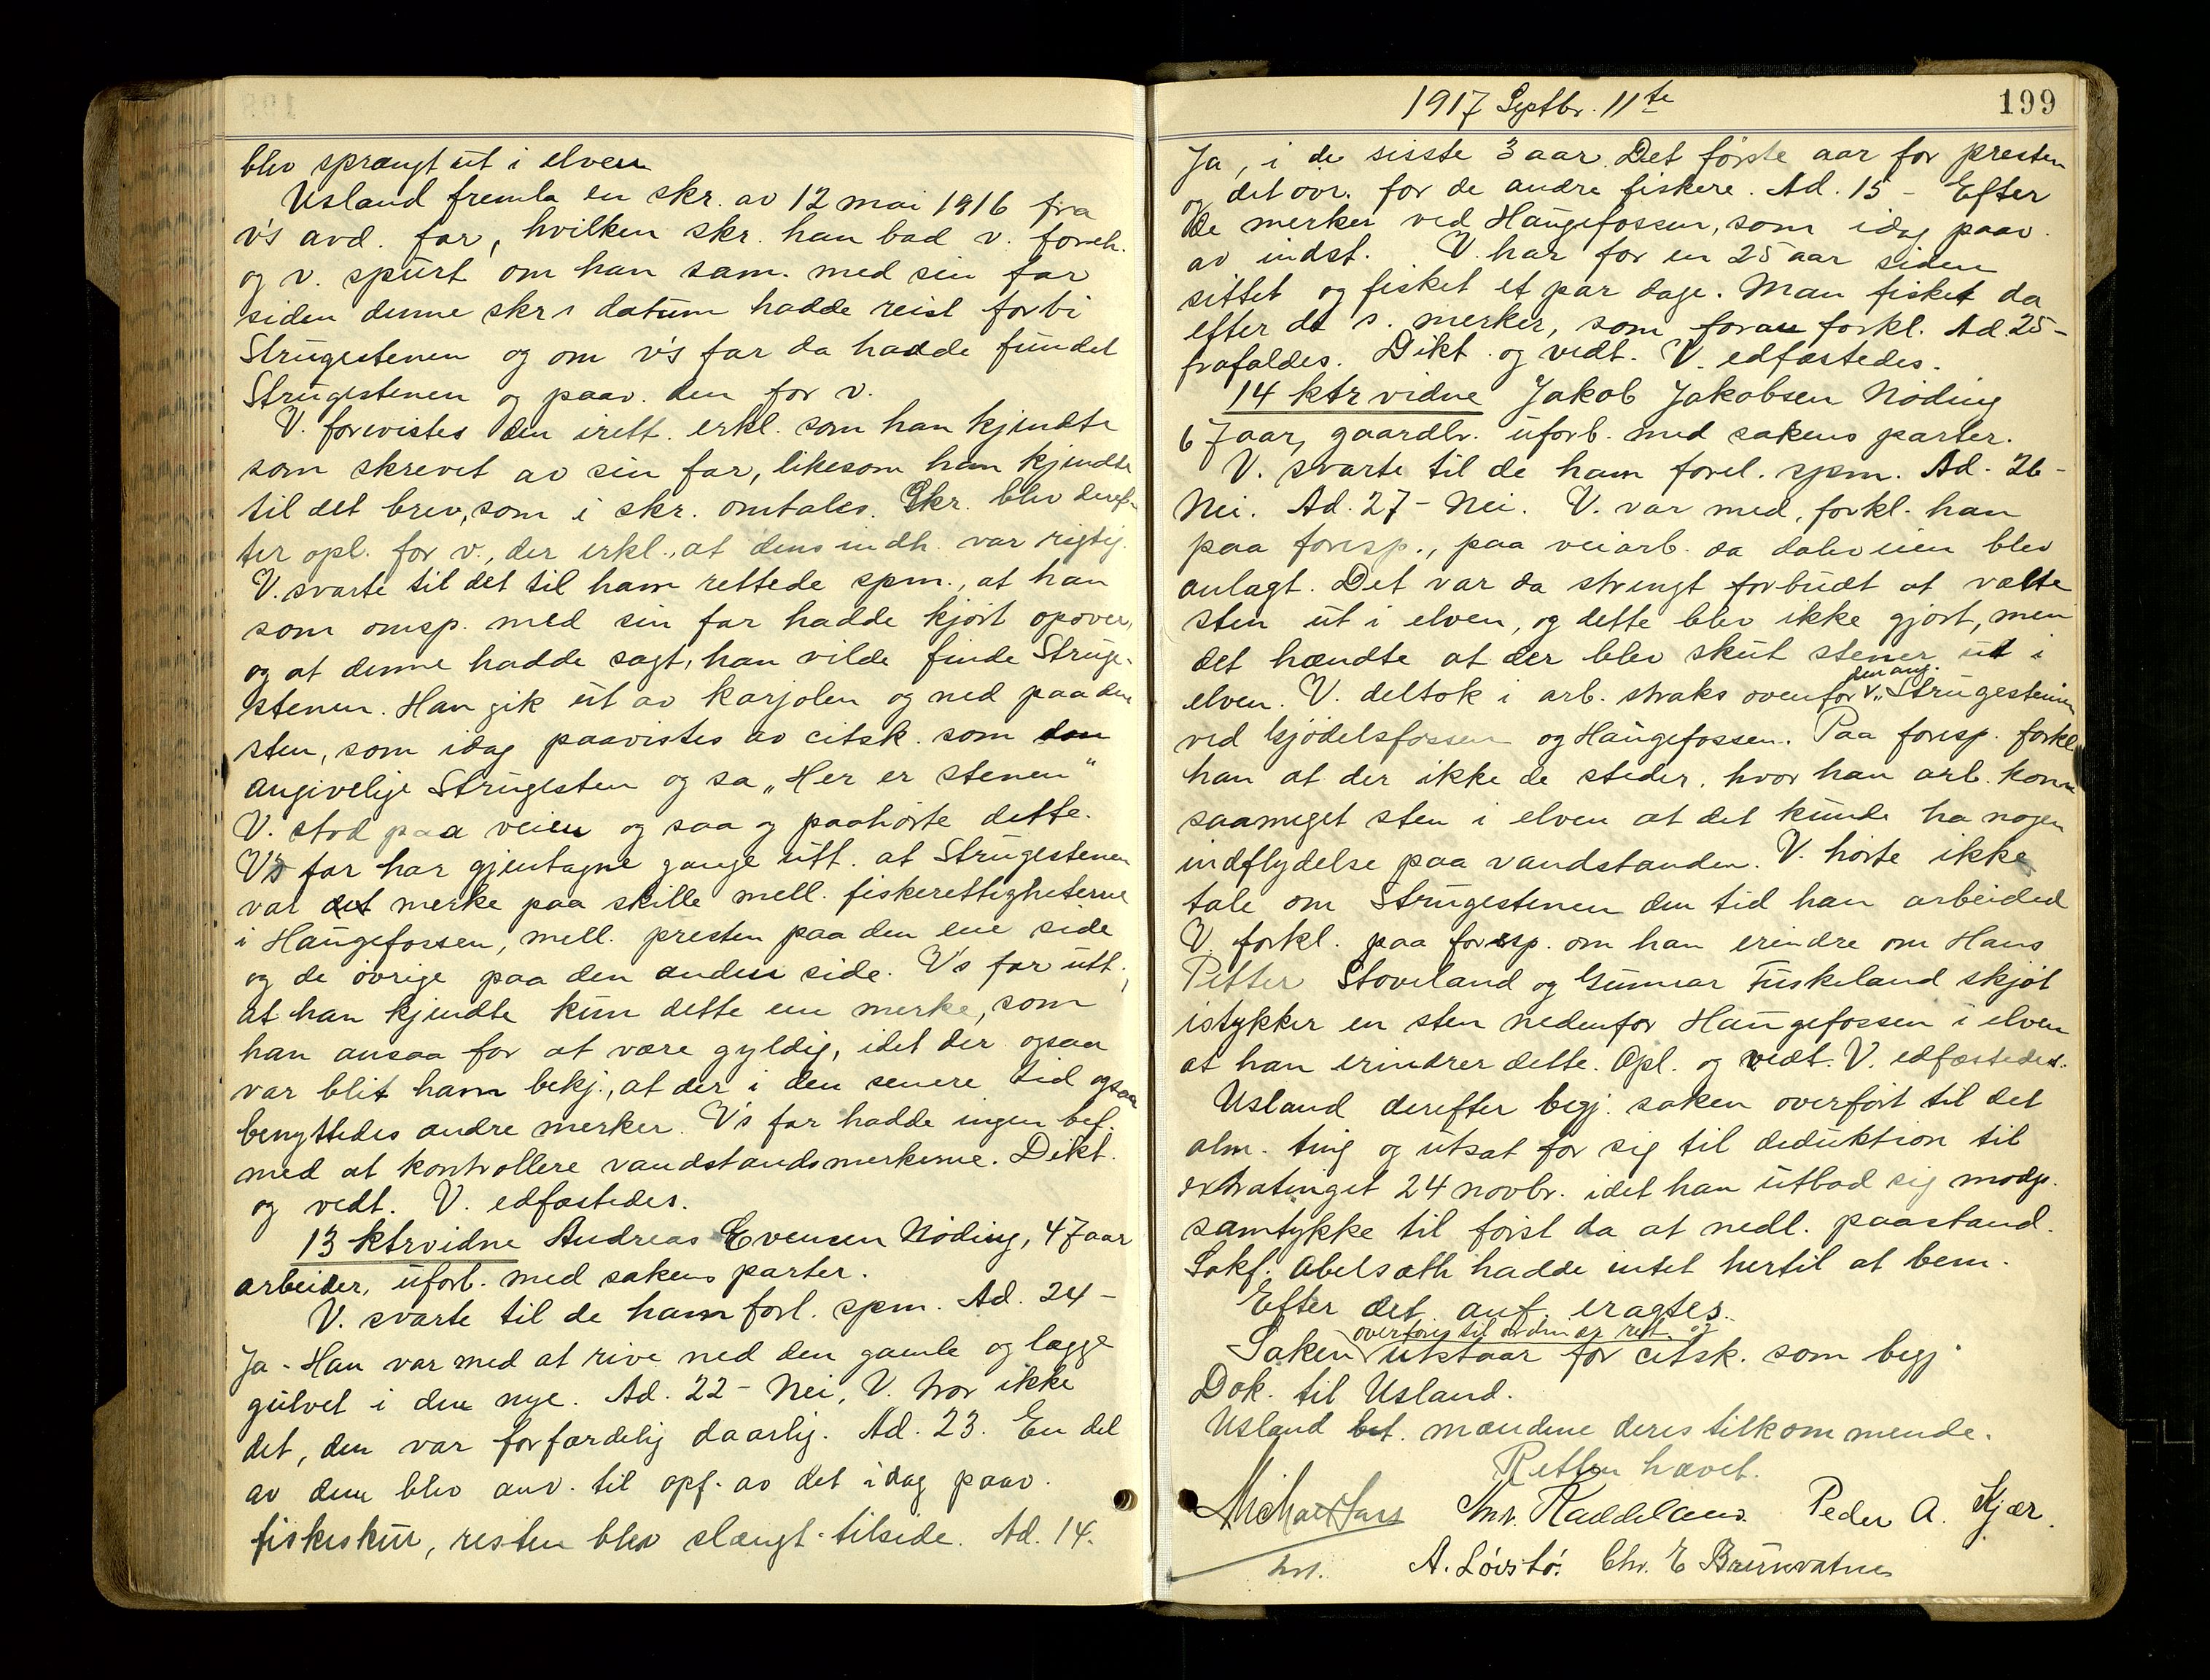 blev sprængt ut i elven
Usland fremla en skr. av 12 mai 1916 fra
v's avd. far, hvilken skr. han bad v. foreh.
og v. spurt om han sam. med sin far
siden denne skr s datum hadde reist forbi
Strugestenen og om v's far da hadde fundet
Strugestenen og paav. den for v.
V. forevistes den irett. erkl. som han kjendte
som skrevet av sin far, likesom han kjendte
til det brev, som i skr. omtales. Skr. blev deref-
ter opl. for v., der erkl., at dens indh. var rigtig.
V. svarte til det til ham rettede spm., at han
som omsp. med sin far hadde kjørt opover,
og at denne hadde sagt, han vilde finde Struge-
stenen. Han gik ut av karjolen og ned paa den
sten, som idag paavistes av citsk. som den
angivelige Strugesten og sa „Her er stenen"
V. stod paa veien og saa og paahørte dette.
V's far har gjentagne gange utt. at Strugestenen
var det merke paa skille mell. fiskerettigheterne
i Haugefossen, mell. presten paa den ene side
og de øvrige paa den anden side. V's far utt.,
at han kjendte kun dette ene merke, som
han ansaa for at være gyldig, idet der ogsaa
var blit ham bekj., at der i den senere tid ogsaa
benyttedes andre merker. V's far hadde ingen bef.
med at kontrollere vandstandsmerkerne. Dikt.
og vedt. V. edfæstedes.
13 ktrvidne Andreas Evensen Nøding, 47 aar
arbeider, uforb. med sakens parter.
V. svarte til de ham forl. spm. Ad. 24 -
Ja - Han var med at rive ned den gamle og lægge
gulvet i den nye. Ad. 22 - Nei, V. tror ikke
det, den var forfærdelig daarlig. Ad. 23. En del
av dem blev anv. til opf. av det idag paav.
fiskeskur, resten blev slængt tilside. Ad. 14.
1917 Septbr. 11te
199
Ja, i de sisste 3 aar. Det første aar for presten
og det øvr. for de andre fiskere. Ad. 15 - Efter
de merker ved Haugefossen, som idag paav.
av indst. V. har for en 25 aar siden
sittet og fisket et par dage. Man fisket da
efter de s. merker, som foran forkl. Ad. 25 -
frafaldes. Dikt. og vedt. V. edfæstedes.
14 ktr vidne Jakob Jakobsen Nøding
67 aar, gaardbr. uforb. med sakens parter.
V. svarte til de ham forel. spm. Ad. 26 -
Nei. Ad. 27 - Nei. V. var med, forkl. han
paa foresp., paa veiarb. da dalsveien blev
anlagt. Det var da strengt forbudt at vælte
sten ut i elven, og dette blev ikke gjort, men
det hændte at der blev skut stener ut i
den ang.
elven. V. deltok i arb. straks ovenfor v „Strugestenen
ved Kjødelsfossen og Haugefossen. Paa foresp. forkl.
han at der ikke de steder, hvor han arb. kom
saameget sten i elven at det kunde ha nogen
indflydelse paa vandstanden. V. hørte ikke
tale om Strugestenen den tid han arbeided
V. forkl. paa foresp. om han erindre om Hans
Petter Stoveland og Gunnar Fuskeland skjøt
istykker en sten nedenfor Haugefossen i elven
at han erindrer dette. Opl. og vedt. V. edfæstedes.
Usland derefter begj. saken overført til det
alm. ting og utsat for sig til deduktion til
extratinget 24 novbr. idet han utbad sig modp.
samtykke til først da at nedl. paastand.
Sakf. Abelsæth hadde intet hertil at bem.
Efter det anf. eragtes.
overføres til ordinær ret og
Saken v utstaar for citsk. som begj.
Dok. til Usland.
Usland bet. mændene deres tilkommende.
Retten hævet.
Peder A. Kjær.
A. Løvstø. Chr. E